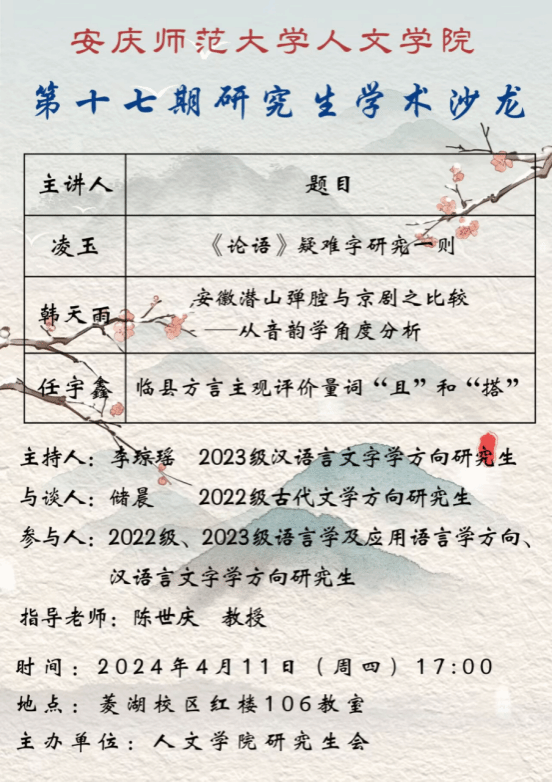 安庆师范大学人文学院
第十七期研究生学术沙龙
主讲人 题目
凌玉 《论语》疑难字研究一则
韩天雨 安徽潜山弹腔与京剧之比较
——从音韵学角度分析
任宇鑫 临县方言主观评价量词“且”和“搭”
主持人：李琼瑶 2023级汉语言文字学方向研究生
与谈人：储晨 2022级古代文学方向研究生
参与人：2022级、2023级语言学及应用语言学方向、
汉语言文字学方向研究生
指导老师：陈世庆 教授
时间：2024年4月11日（周四）17:00
地点：菱湖校区红楼106教室
主办单位：人文学院研究生会